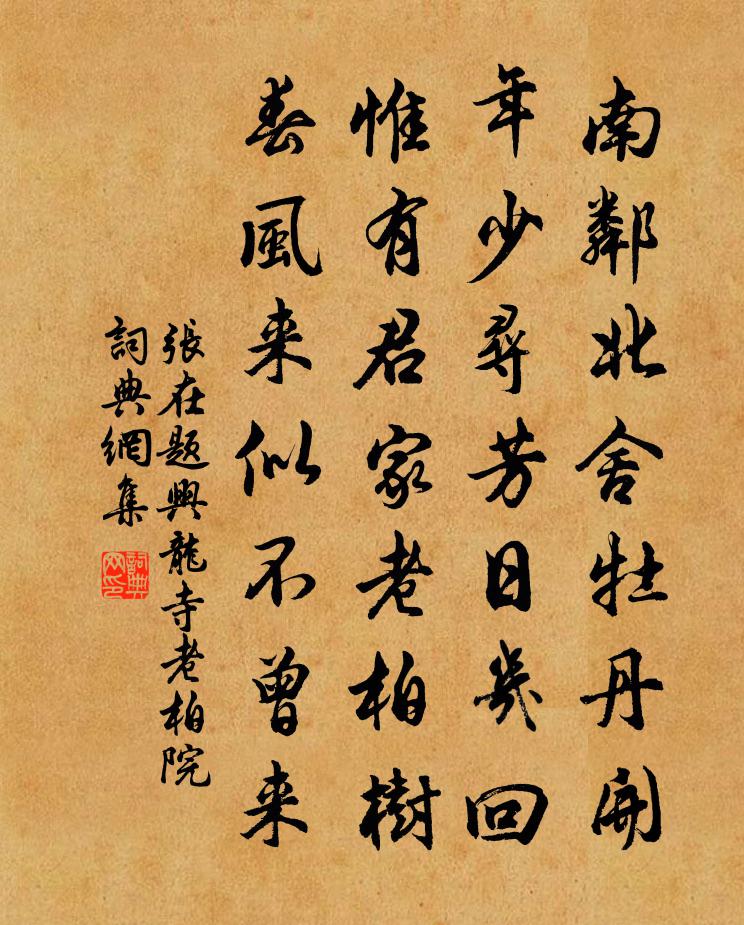 南鄰北舍牡丹開
年少尋芳日幾回
惟有君家老柏樹
春風来似不曾来
張在題興龍寺老柏院
詞典網集
詞典网印